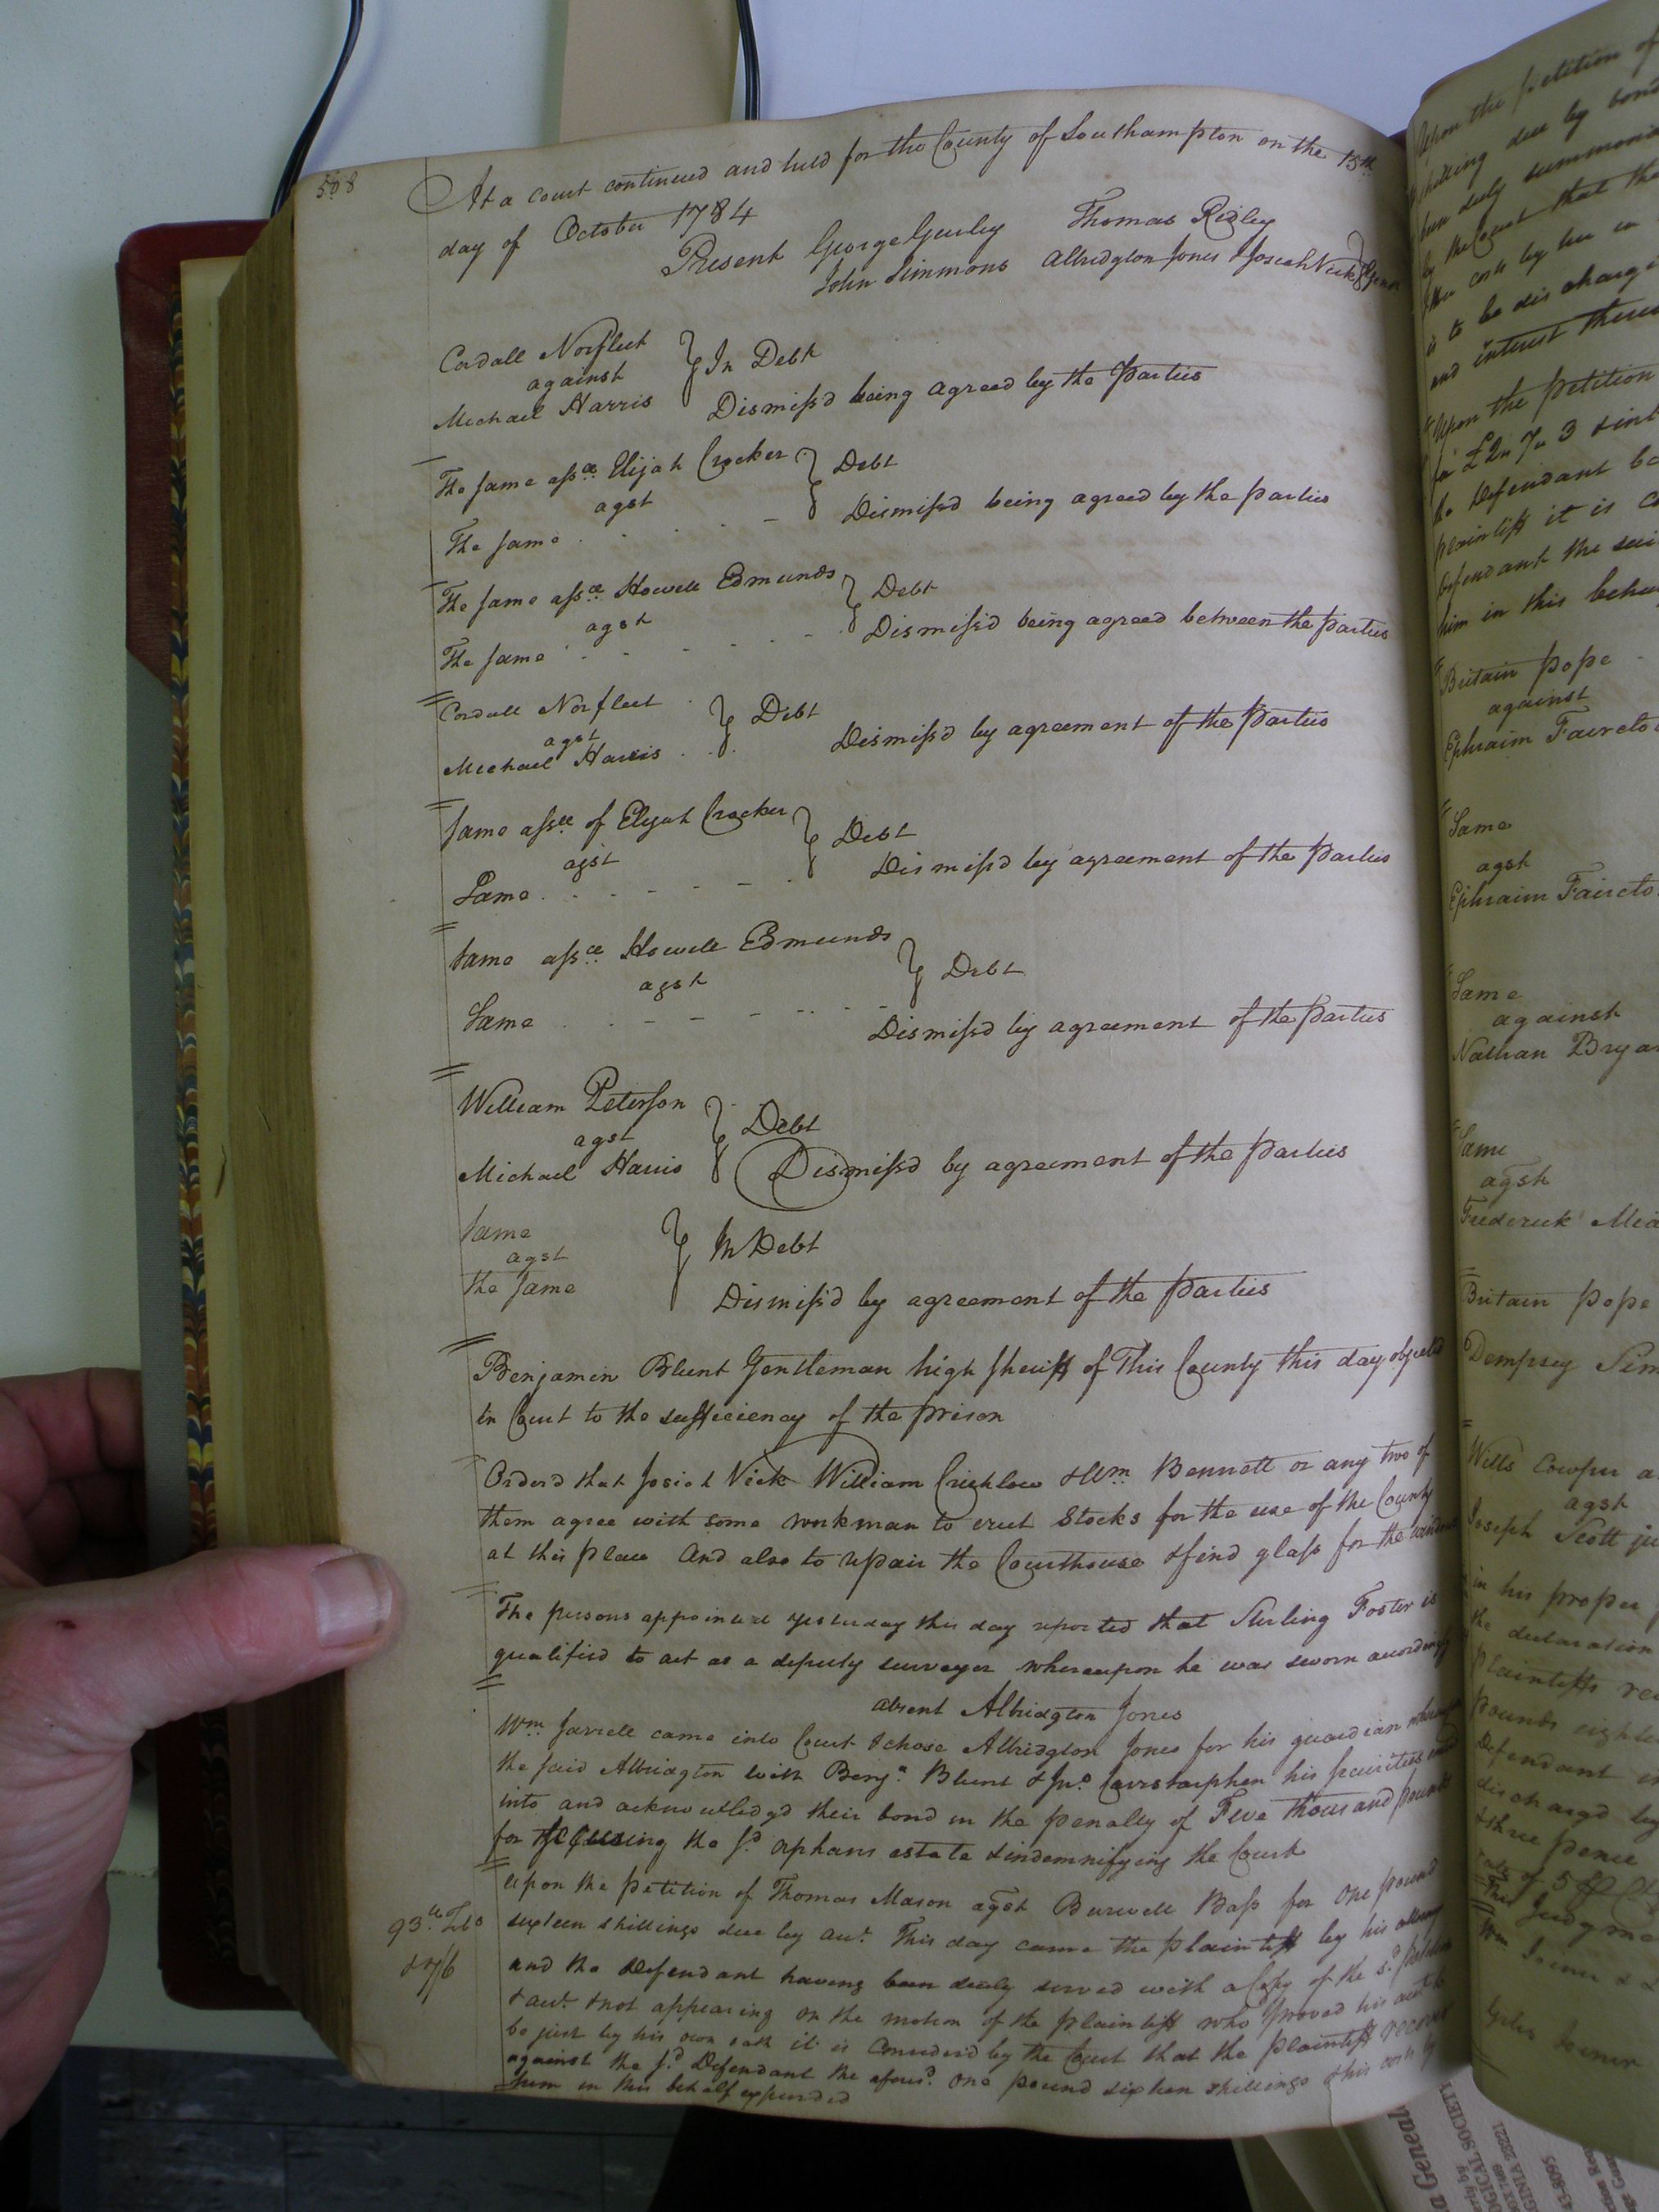 508
At a Court continued and held for the County of Southampton on the 15th
day of October 1784
Present George Gurley Thomas Ridley
John Simmons Albridgton Jones & Josiah Vick Gent
Cordall Norfleet
against
Michael Harris
} In Debt
Dismiss'd being agreed by the Parties
The same assee Elijah Crocker
agst
The same
} Debt
Dismiss'd being agreed by the parties
The same assee Howell Edmunds
agst
The same
} Debt
Dismiss'd being agreed between the parties
Cordall Norfleet
agst
Michael Harris
} Debt
Dismiss'd by agreement of the Parties
same assee of Elijah Crocker
agst
Same
} Debt
Dismiss'd by agreement of the Parties
same assee Howell Edmunds
agst
Same
} Debt
Dismiss'd by agreement of the Parties
William Peterson
agst
Michael Harris
} Debt
Dismiss'd by agreement of the Parties
same
agst
the same
} In Debt
Dismiss'd by agreement of the Parties
Benjamin Blunt Gentleman high sheriff of This County this day objected
in Court to the sufficiency of the prison
Orderd that Josiah Vick William Crichlow & Wm Bennett or any two of
them agree with some workman to erect Stocks for the use of the County
at this place And also to repair the Courthouse & find glass for the windows
The persons appointed yesterday this day reported that Sterling Foster is
qualified to act as a deputy surveyor whereupon he was sworn accordingly
absent Albridgton Jones
Wm Jarrell came into Court & chose Albridgton Jones for his guardian whereupon
the said Albridgton with Benja Blunt & Jno his securities
into and acknowledgd their bond in the penalty of Five thousand pounds
for securing the sd orphans estate & indemnifying the Court
93 Tob
& 7/6
upon the petition of Thomas Mason agst Burwell Bass for One pound
sixteen shillings due by acct. This day came the plaintiff by his attorney
and the Defendant having been duly served with a Copy of the sd petition
& acct & not appearing on the motion of the plaintiff who proved his acct to
be just by his own oath it is Considerd by the Court that the plaintiff recover
against the sd Defendant the aforesd one pound sixteen shillings & his costs by
him in this behalf expended
Upon the petition of
shilling due by bond
been duly summoned
by the Court that the
other costs by her in
is to be discharg
and interest there
Upon the petition
for £2" 7" 3
the Defendant
plaintiff it is
Defendant the said
him in this behalf
Britain Pope
against
Ephraim
Same
agst
Ephraim
Same
against
Nathan
Same
agst
Frederick
Britain Pope
Dempsey
Wills Cowper
agst
Joseph Scott
in his proper
the declaration
plaintiffs
pounds
Defendant
discharg'd by
& three pence
rate of 5
This Judgme
Wm Joiner
Giles Joiner